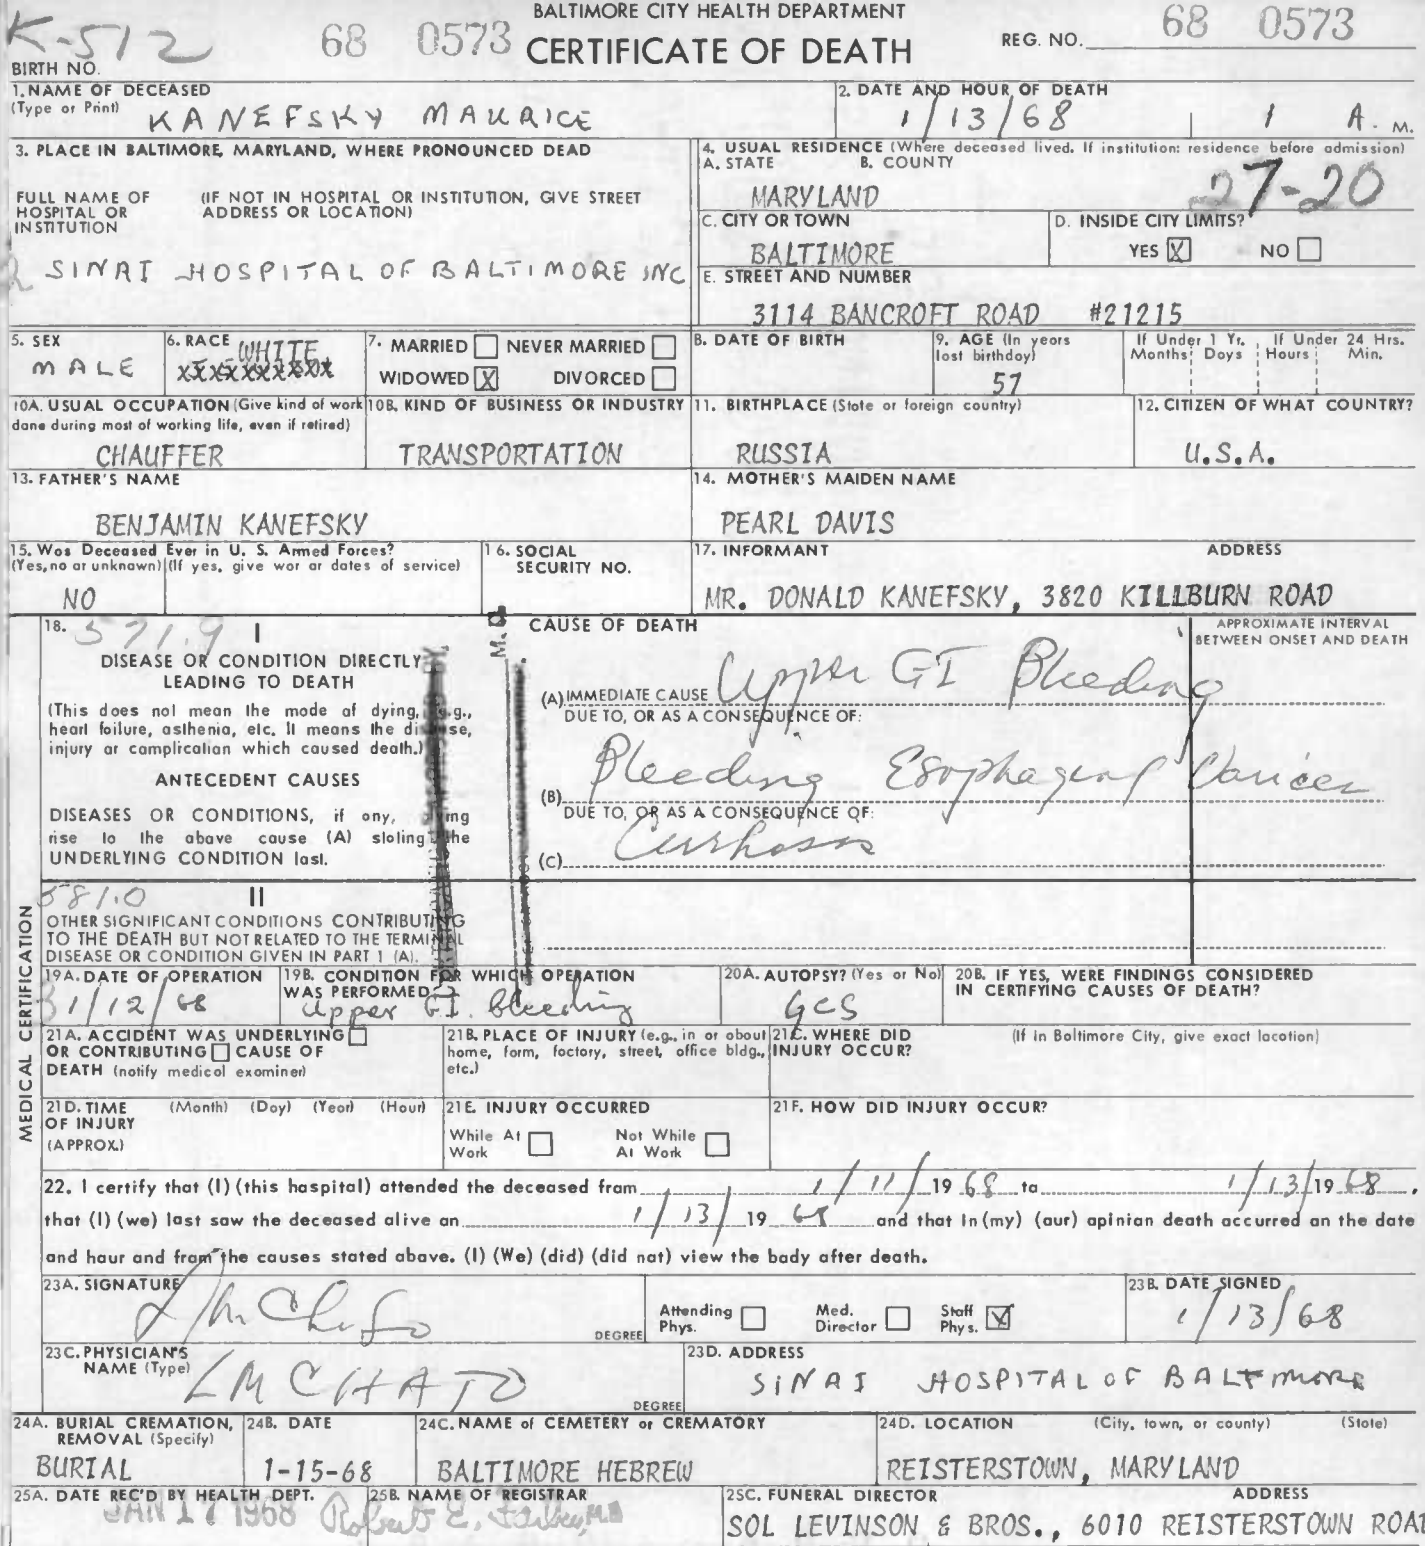 BALTIMORE CITY HEALTH DEPARTMENT
K-512 68 0573 CERTIFICATE OF DEATH REG. NO. 68 0573
BIRTH NO.
1. NAME OF DECEASED
(Type or Print) KANEFSKY MAURICE
2. DATE AND HOUR OF DEATH
1/13/68 1 A. M.
3. PLACE IN BALTIMORE, MARYLAND, WHERE PRONOUNCED DEAD
FULL NAME OF HOSPITAL OR INSTITUTION (IF NOT IN HOSPITAL OR INSTITUTION, GIVE STREET ADDRESS OR LOCATION)
SINAI HOSPITAL OF BALTIMORE INC
4. USUAL RESIDENCE (Where deceased lived. If institution: residence before admission)
A. STATE B. COUNTY
MARYLAND 27-20
C. CITY OR TOWN D. INSIDE CITY LIMITS?
BALTIMORE YES X NO
E. STREET AND NUMBER
3114 BANCROFT ROAD #21215
5. SEX
MALE
6. RACE WHITE
xxxxxxxxxx
7. MARRIED NEVER MARRIED
WIDOWED X DIVORCED
8. DATE OF BIRTH
9. AGE (In years last birthday)
57
If Under 1 Yr. If Under 24 Hrs.
Months Days Hours Min.
10A. USUAL OCCUPATION (Give kind of work done during most of working life, even if retired)
CHAUFFER
10B. KIND OF BUSINESS OR INDUSTRY
TRANSPORTATION
11. BIRTHPLACE (State or foreign country)
RUSSIA
12. CITIZEN OF WHAT COUNTRY?
U.S.A.
13. FATHER'S NAME
BENJAMIN KANEFSKY
14. MOTHER'S MAIDEN NAME
PEARL DAVIS
15. Was Deceased Ever in U. S. Armed Forces?
(Yes, no or unknown) (If yes, give war or dates of service)
NO
16. SOCIAL SECURITY NO.
17. INFORMANT ADDRESS
MR. DONALD KANEFSKY, 3820 KILLBURN ROAD
18. 571.9 I
DISEASE OR CONDITION DIRECTLY
LEADING TO DEATH
(This does not mean the mode of dying, e.g.,
heart failure, asthenia, etc. It means the disease,
injury or complication which caused death.)
ANTECEDENT CAUSES
DISEASES OR CONDITIONS, if any, giving
rise to the above cause (A) stating the
UNDERLYING CONDITION last.
M. D.
CAUSE OF DEATH
APPROXIMATE INTERVAL
BETWEEN ONSET AND DEATH
(A) IMMEDIATE CAUSE Upper GI Bleeding
DUE TO, OR AS A CONSEQUENCE OF:
(B) Bleeding Esophageal Varices
DUE TO, OR AS A CONSEQUENCE OF:
(C) Cirrhosis
581.0 II
OTHER SIGNIFICANT CONDITIONS CONTRIBUTING
TO THE DEATH BUT NOT RELATED TO THE TERMINAL
DISEASE OR CONDITION GIVEN IN PART 1 (A).
MEDICAL CERTIFICATION
19A. DATE OF OPERATION
1/12/68
19B. CONDITION FOR WHICH OPERATION
WAS PERFORMED
Upper G.I. bleeding
20A. AUTOPSY? (Yes or No)
yes
20B. IF YES, WERE FINDINGS CONSIDERED
IN CERTIFYING CAUSES OF DEATH?
21A. ACCIDENT WAS UNDERLYING
OR CONTRIBUTING CAUSE OF
DEATH (notify medical examiner)
21B. PLACE OF INJURY (e.g., in or about
home, farm, factory, street, office bldg.,
etc.)
21C. WHERE DID (If in Baltimore City, give exact location)
INJURY OCCUR?
21D. TIME (Month) (Day) (Year) (Hour)
OF INJURY
(APPROX.)
21E. INJURY OCCURRED
While At Work Not While At Work
21F. HOW DID INJURY OCCUR?
22. I certify that (I) (this hospital) attended the deceased from 1/11/ 19 68 to 1/13/ 19 68,
that (I) (we) last saw the deceased alive on 1/13/ 19 68 and that in (my) (our) opinion death occurred on the date
and hour and from the causes stated above. (I) (We) (did) (did not) view the body after death.
23A. SIGNATURE
DEGREE
Attending Phys. Med. Director Staff Phys. X
23B. DATE SIGNED
1/13/68
23C. PHYSICIAN'S
NAME (Type) LM CHATO
DEGREE
23D. ADDRESS
SINAI HOSPITAL OF BALTIMORE
24A. BURIAL CREMATION,
REMOVAL (Specify)
BURIAL
24B. DATE
1-15-68
24C. NAME of CEMETERY or CREMATORY
BALTIMORE HEBREW
24D. LOCATION (City, town, or county) (State)
REISTERSTOWN, MARYLAND
25A. DATE REC'D BY HEALTH DEPT.
JAN 17 1968
25B. NAME OF REGISTRAR
Robert E. Farber, M.D.
25C. FUNERAL DIRECTOR ADDRESS
SOL LEVINSON & BROS., 6010 REISTERSTOWN ROAD